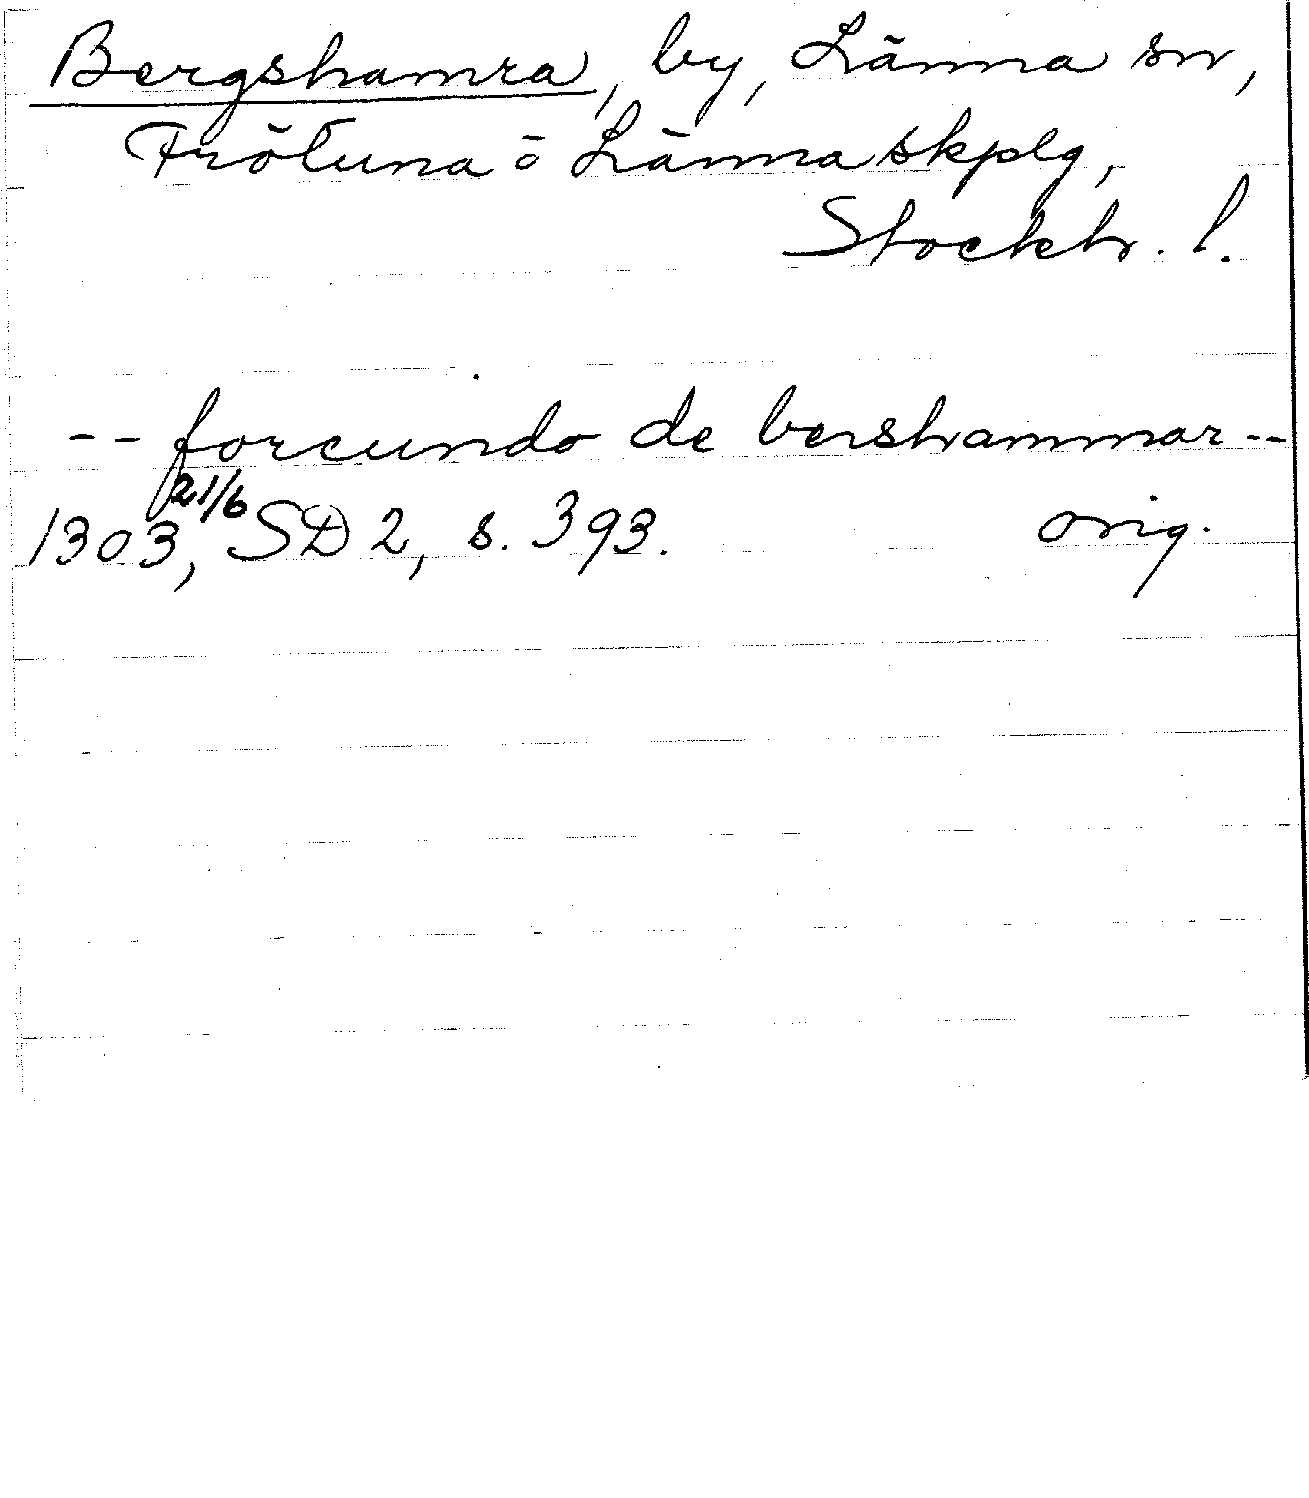 Bergshamra, by, Länna sn,
Frötuna o Länna skplg,
Stockh. l.
-- forcundo de bershammar --
1303, 21/6 SD 2, s. 393. orig.